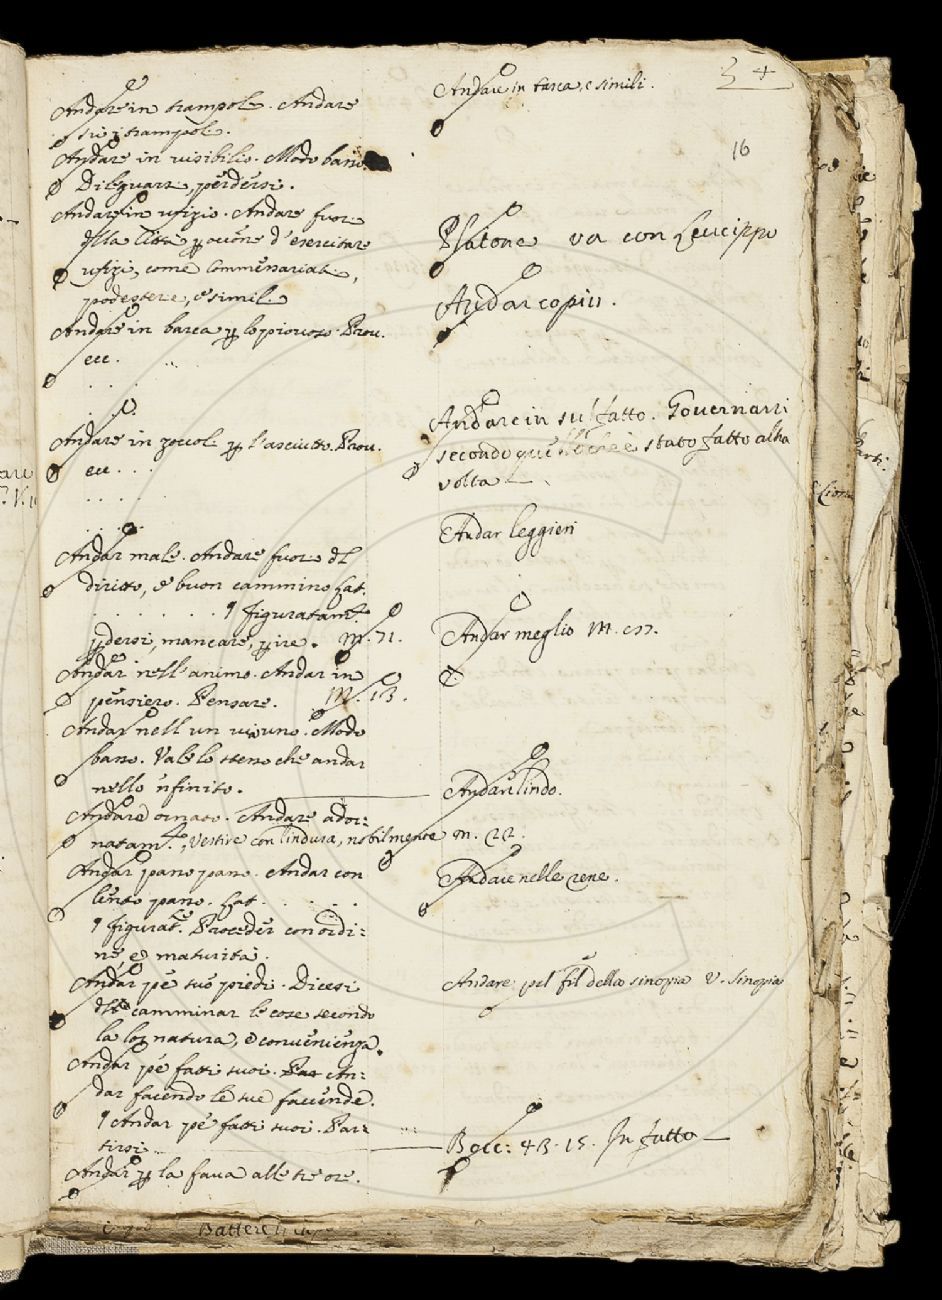 34
16
Andare in trampoli. Andare
su i trampoli.
Andare in visibilio. Modo basso
Dileguarsi, perdersi.
Andare in ufizio. Andare fuor
della Città p cacione d'esercitare
ufizi, come Commessariati,
podesterie, e simili.
Andare in barca p lo piovoso. Prov.
ecc.
Andare in zoccoli p l'asciutto. Prov.
ecc. . . .
Andar male. Andare fuor del
diritto, e buon cammino Lat.
. . . . . . ¶ figuratam.te
pdersi, mancare, pire. M. 71.
Andar nell'animo. Andar in
pensiero. Pensare. M. 13.
Andar nell un vie uno. Modo
basso. Vale lo stesso che andar
nello 'nfinito.
Andare ornato. Andare ador-
natam.te, vestire con lindura, nobilmente m. 22.
Andar passo passo. Andar con
lento passo. Lat. . . . . .
¶ figurat.te Proceder con ordi=
ne, e maturità.
Andar pe' suo' piedi. Dicesi
del camminar le cose secondo
la lor natura, e convenienza.
Andar pe' fatti suoi. An=
dar facendo le sue faccende.
¶ Andar pe' fatti suoi. Par=
tirsi
Andar p la fava alle tre ore.
Andare in tasca, e simili.
Platone va con Leucippo
Andar copiu.
Andare in sul fatto. Governarsi
secondo quello che è stato fatto altra
volta
Andar leggieri
Andar meglio M.
Andare lindo.
Andare nelle rene.
Andare pel fil della sinopia v. Sinopia
Bocc: 43. 15. In fatto
Battere